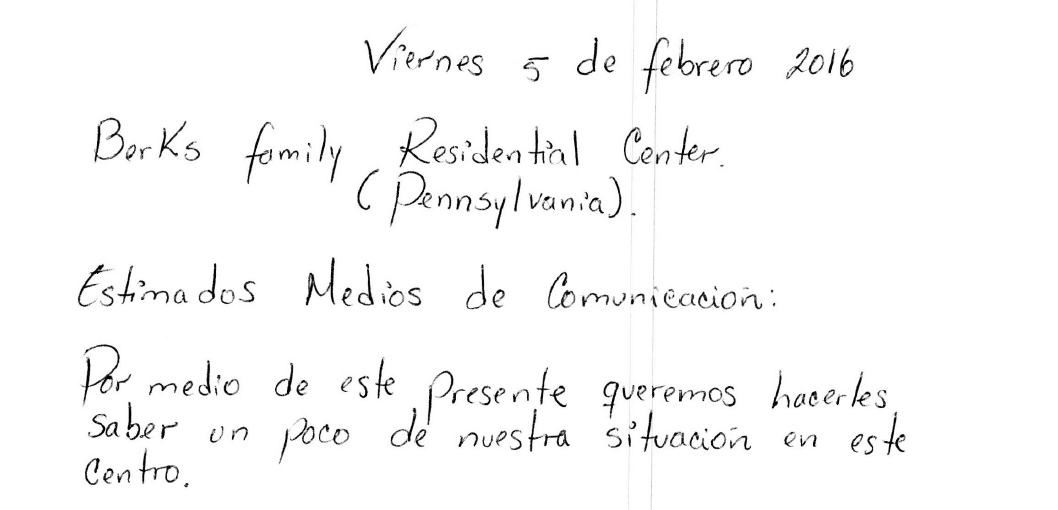 Viernes 5 de febrero 2016
Berks family Residential Center.
(Pennsylvania).
Estimados Medios de Comunicación:
Por medio de este presente queremos hacerles
saber un poco de nuestra situación en este
Centro.